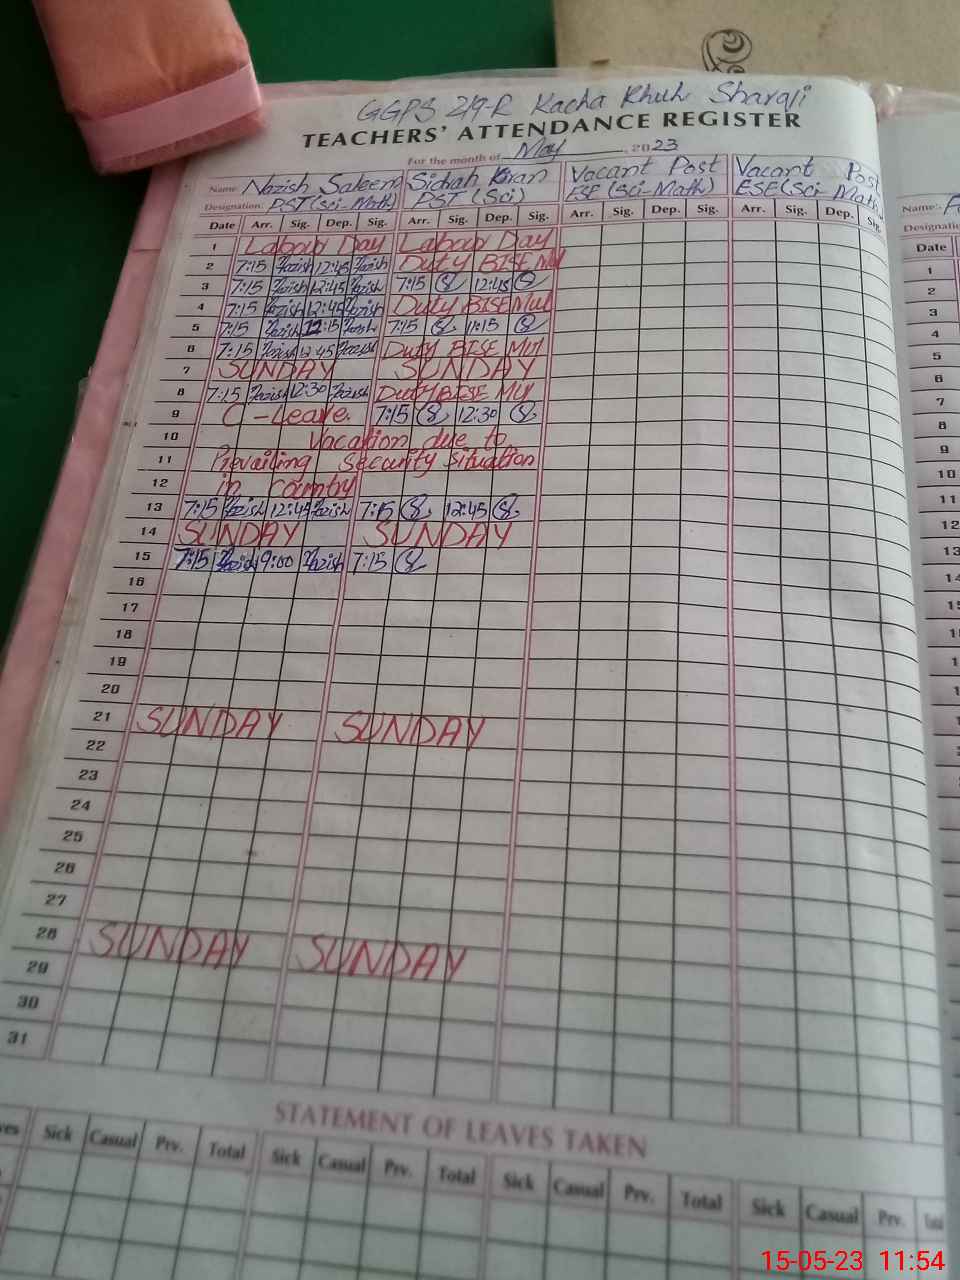 GGPS 219-R Kacha Khuh Sharqi
TEACHERS' ATTENDANCE REGISTER
For the month of May, 2023
Name: Nazish Saleem Sidrah Kiran Vacant Post Vacant Post
Designation: PST (Sci-Math) PST (Sci) ESE (Sci-Math) ESE (Sci-Math)
Date Arr. Sig. Dep. Sig. Arr. Sig. Dep. Sig. Arr. Sig. Dep. Sig. Arr. Sig. Dep. Sig.
1 Labour Day Labour Day
2 7:15 Nazish 12:45 Nazish Duty BISE Mul
3 7:15 Nazish 12:45 Nazish 7:15 12:45
4 7:15 Nazish 12:45 Nazish Duty BISE Mul
5 7:15 Nazish 11:15 Nazish 7:15 11:15
6 7:15 Nazish 12:45 Nazish Duty BISE Mul
7 SUNDAY SUNDAY
8 7:15 Nazish 12:30 Nazish Duty BISE Mul
9 C-Leave. 7:15 12:30
10 Vacation due to
11 Prevailing Security Situation
12 in country
13 7:15 Nazish 12:45 Nazish 7:15 12:45
14 SUNDAY SUNDAY
15 7:15 Nazish 9:00 Nazish 7:15
16
17
18
19
20
21 SUNDAY SUNDAY
22
23
24
25
26
27
28 SUNDAY SUNDAY
29
30
31
STATEMENT OF LEAVES TAKEN
Sick Casual Prv. Total Sick Casual Prv. Total Sick Casual Prv. Total Sick Casual Prv. Total
Name:
Date
1
2
3
4
5
6
7
8
9
10
11
12
13
15-05-23 11:54